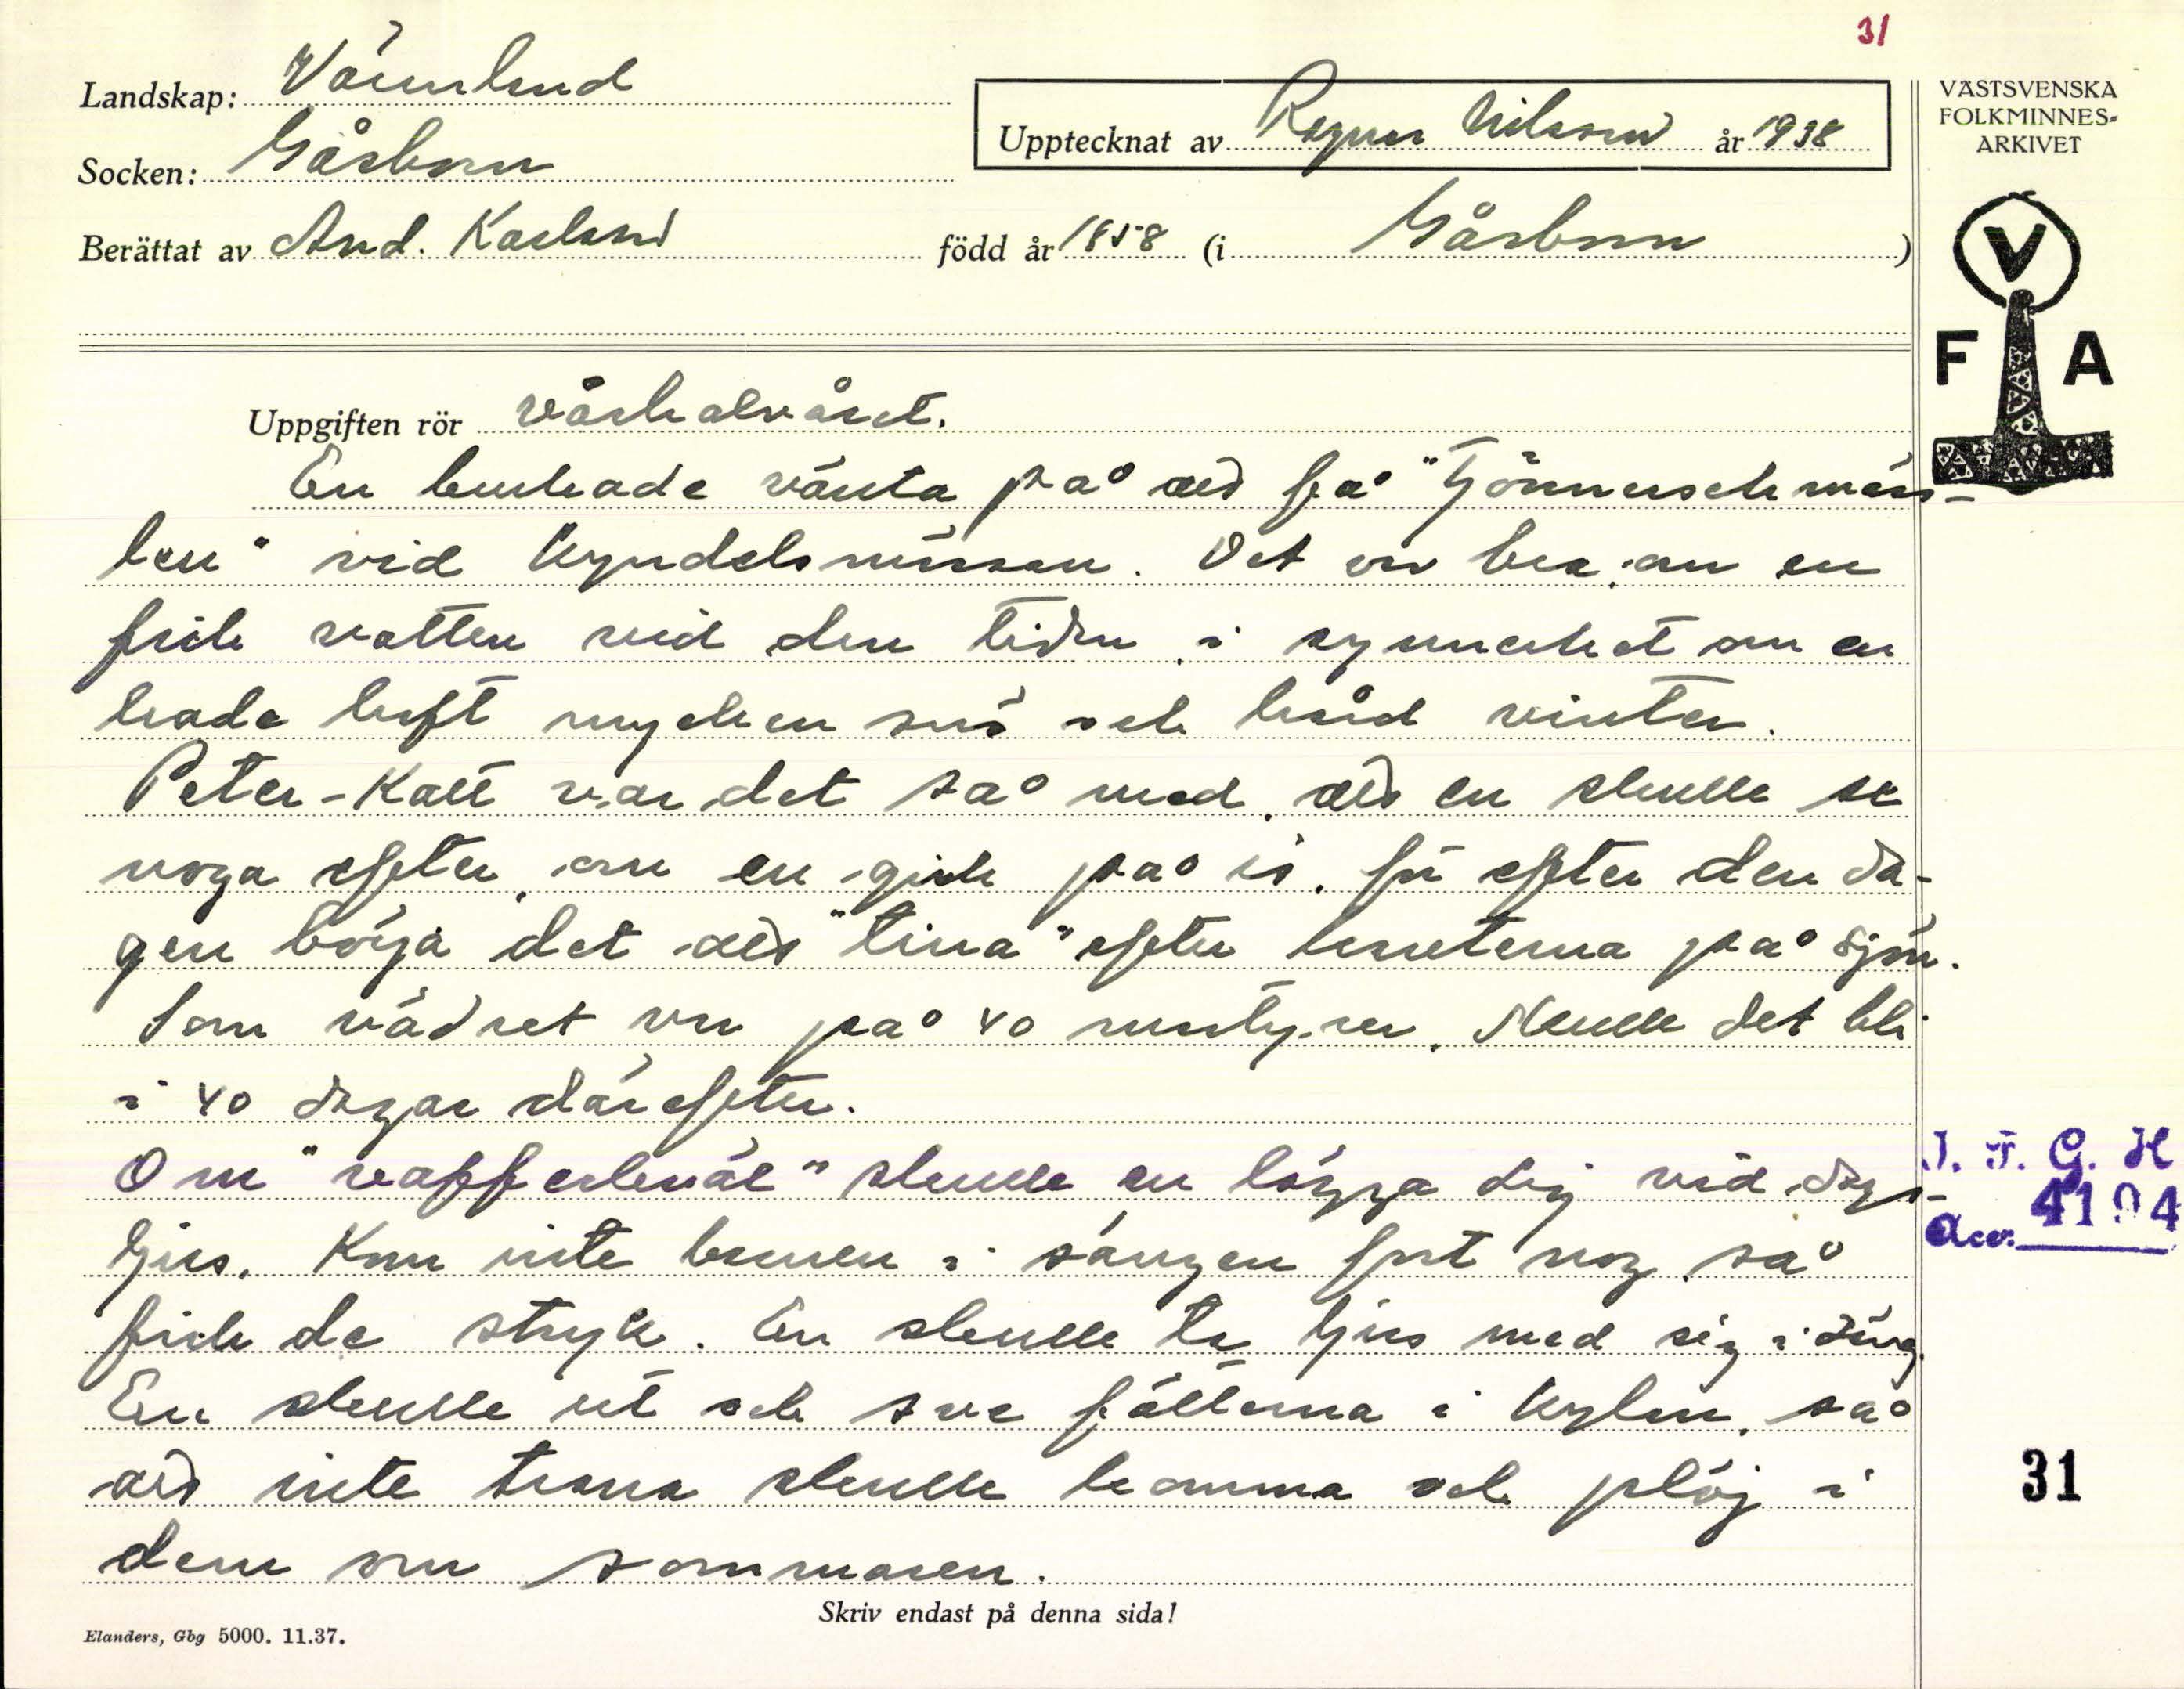 31
Landskap: Värmland
Socken: Gåsborn
Upptecknat av Ragnar Nilsson år 1938
Berättat av And. Karlsson född år 1858 (i Gåsborn)
VÄSTSVENSKA
FOLKMINNES-
ARKIVET
V
F A
Uppgiften rör vårhalvåret.
En brukade vänta på att få "Tjönnerschmäss-
" vid Kyndelsmässan. Det var bra, om en
fick vatten vid den tiden, i synnerhet om en
hade haft mycken snö och hård vinter.
Peter-Katt var det så med, att en skulle se
noga efter, om en gick på is, för efter den da-
gen börja det att "tina" efter på sjön.
Som vädret var på 40 martyrer, skulle det bli
i 40 dagar därefter.
Om "vaffelkväl" skulle en lägga sig vid dags-
ljus. Kom inte barnen i sängen fort nog, så
fick de stryk. En skulle ta ljus med sig i säng.
En skulle ut och sva fällerna i kylan, så
att inte trana skulle komma och plöj i
dem om sommaren.
I. F. G. H
Acc. 4194
31
Skriv endast på denna sida!
Elanders, Gbg 5000. 11.37.